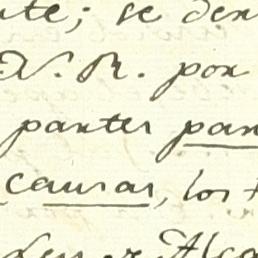 te; se den
N. R. por
partes par
causas, los
Alca